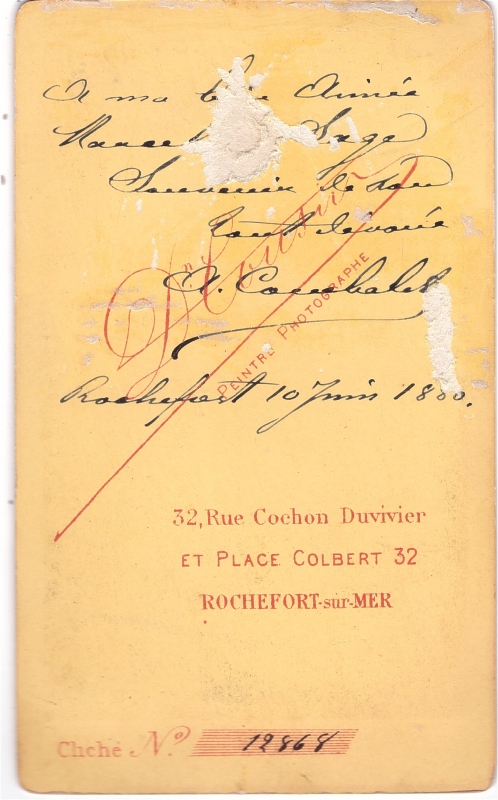 A ma Aimée
Sage
Souvenir de son
tout dévoué
A. Combalet
Rochefort 10 Juin 1880.
Cousin
PEINTRE PHOTOGRAPHE
32, Rue Cochon Duvivier
ET PLACE COLBERT 32
ROCHEFORT-sur-MER
Cliché N.º 12868